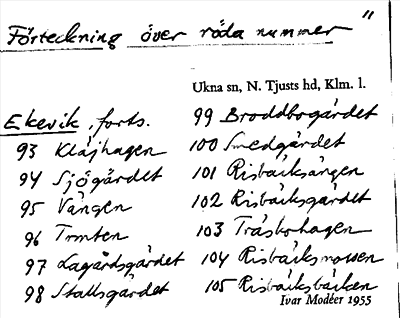 Förteckning över röda nummer "
Ukna sn, N. Tjusts hd, Klm. l.
Ekevik, forts.
93 Klájhagen
94 Sjögärdet
95 Vángen
96 Tomten
97 Lagårdsgärdet
98 Stallsgärdet
99 Broddbogärdet
100 Smedgärdet
101 Risbäcksängen
102 Risbäcksgärdet
103 Träsbohagen
104 Risbäcksmossen
105 Risbäcksbäcken
Ivar Modéer 1955